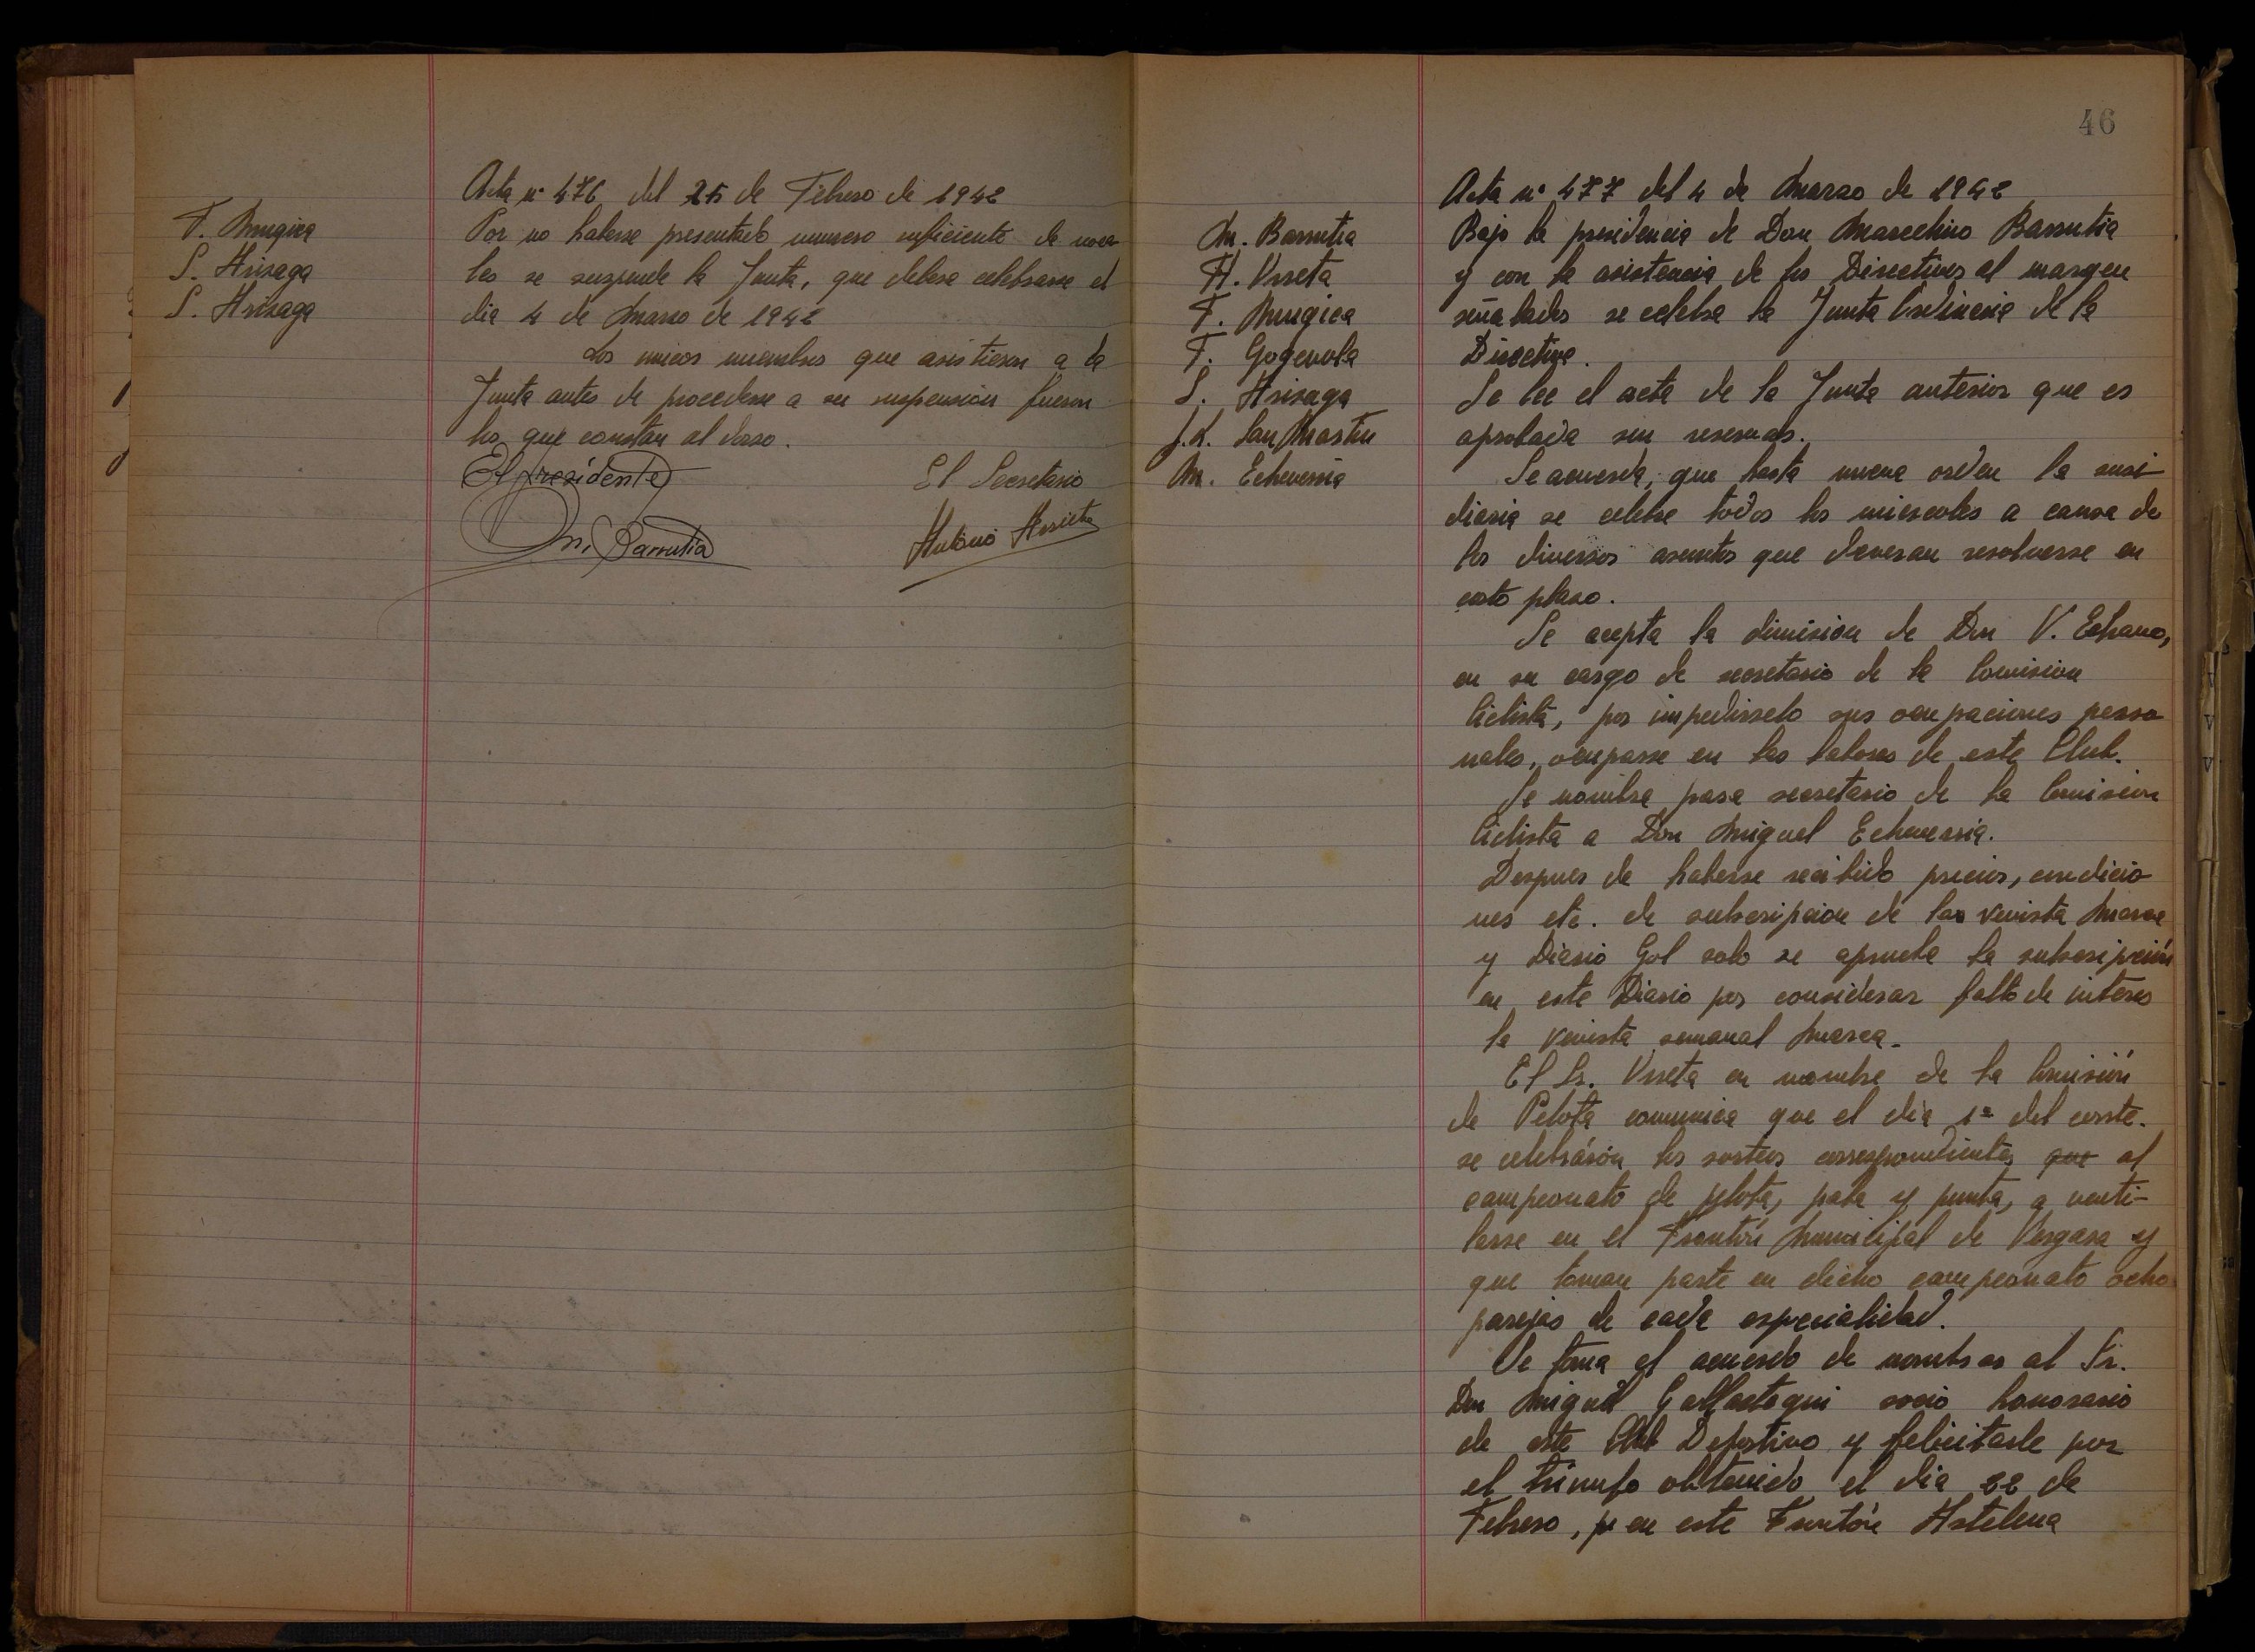 Acta nº 476 del 25 de Febrero de 1942
F. Mugica
S. Arisaga
S. Arisaga
Por no haberse presentado numero suficiente de voca
les se suspende la Junta, que debera celebrarse el
dia 4 de Marzo de 1942
Los unicos miembros que asistieron a la
Junta antes de procederse a su suspensión fueron
los que constan al dorso.
El Presidente
El Secretario
M. Barrutia
Antonio Arrieta
46
Acta nº 477 del 4 de Marzo de 1942
M. Barrutia
A. Urreta
F. Mugica
F. Gogenola
S. Arisaga
J.L. San Martin
M. Echeverria
Bajo la presidencia de Don Marcelino Barrutia
y con la asistencia de los Directivos al margen
señalados se celebra la Junta Ordinaria de la
Directiva.
Se lee el acta de la Junta anterior que es
aprobada sin reservas.
Se acuerda, que hasta nueva orden la
diaria se celebre todos los miercoles a causa de
los diversos asuntos que deveran resolverse en
este plazo.
Se acepta la dimision de Don V. Echano,
en su cargo de secretario de la Comision
Ciclista, por impedirselo sus ocupaciones perso
nales, ocuparse en las labores de este Club.
Se nombra para secretario de la Comision
Ciclista a Don Miguel Echeverria.
Despues de haberse recibido precios, condicio
nes etc. de subscripcion de las revista Marca
y Diario Gol solo se aprueba la subscripción
en este Diario por considerar falto de interes
la revista semanal Marca.
El Sr. Urreta en nombre de la Comisión
de Pelota comunica que el dia 1º del corrte.
se celebráron los sorteos correspondientes que al
campeonato de pelota, pala y punta, a venti-
larse en el Frontón Municipal de Vergara y
que toman parte en dicho campeonato ocho
parejas de cada especialidad.
Se toma el acuerdo de nombrar al Sr.
Don Miguel Gallastegui socio honorario
de este Club Deportivo y felicitarle por
el triunfo obtenido el dia 22 de
Febrero, en este Frontón Astelena